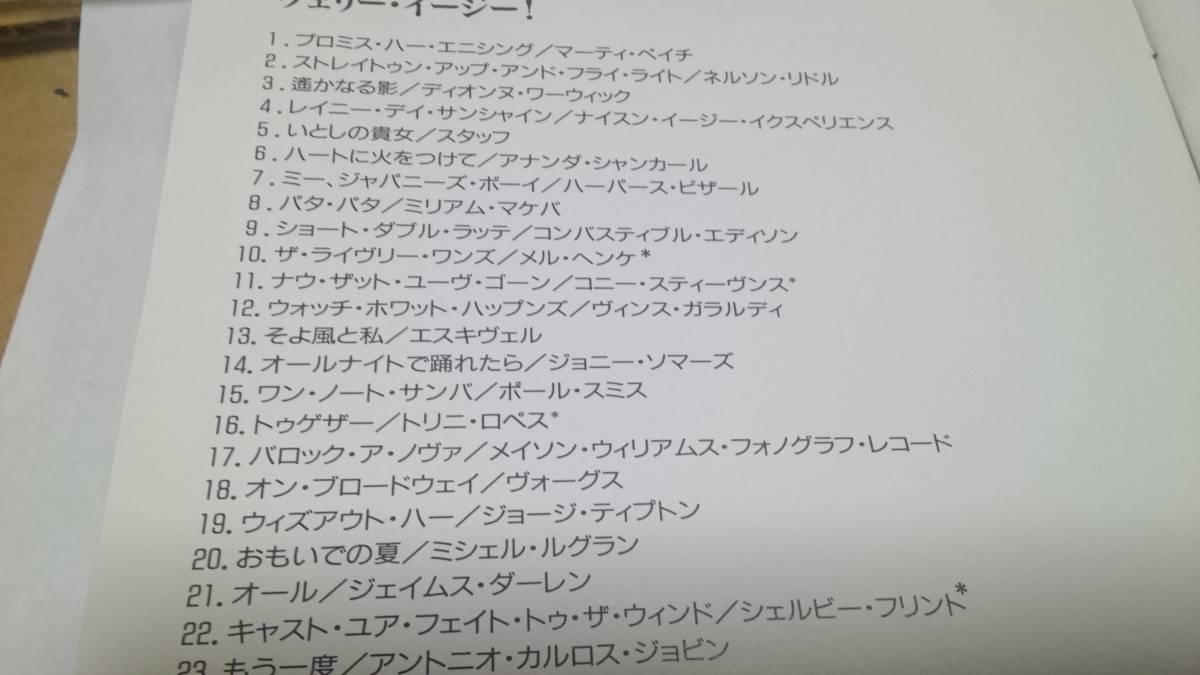 ヴェリー・イージー!
1. プロミス・ハー・エニシング／マーティ・ペイチ
2. ストレイトゥン・アップ・アンド・フライ・ライト／ネルソン・リドル
3. 遙かなる影／ディオンヌ・ワーウィック
4. レイニー・デイ・サンシャイン／ナイスン・イージー・イクスペリエンス
5. いとしの貴女／スタッフ
6. ハートに火をつけて／アナンダ・シャンカール
7. ミー、ジャパニーズ・ボーイ／ハーパース・ビザール
8. パタ・パタ／ミリアム・マケバ
9. ショート・ダブル・ラッテ／コンバスティブル・エディソン
10. ザ・ライヴリー・ワンズ／メル・ヘンケ*
11. ナウ・ザット・ユーヴ・ゴーン／コニー・スティーヴンス*
12. ウォッチ・ホワット・ハップンズ／ヴィンス・ガラルディ
13. そよ風と私／エスキヴェル
14. オールナイトで踊れたら／ジョニー・ソマーズ
15. ワン・ノート・サンバ／ポール・スミス
16. トゥゲザー／トリニ・ロペス*
17. バロック・ア・ノヴァ／メイソン・ウィリアムス・フォノグラフ・レコード
18. オン・ブロードウェイ／ヴォーグス
19. ウィズアウト・ハー／ジョージ・ティプトン
20. おもいでの夏／ミシェル・ルグラン
21. オール／ジェイムス・ダーレン
22. キャスト・ユア・フェイト・トゥ・ザ・ウィンド／シェルビー・フリント*
23. もう一度／アントニオ・カルロス・ジョビン